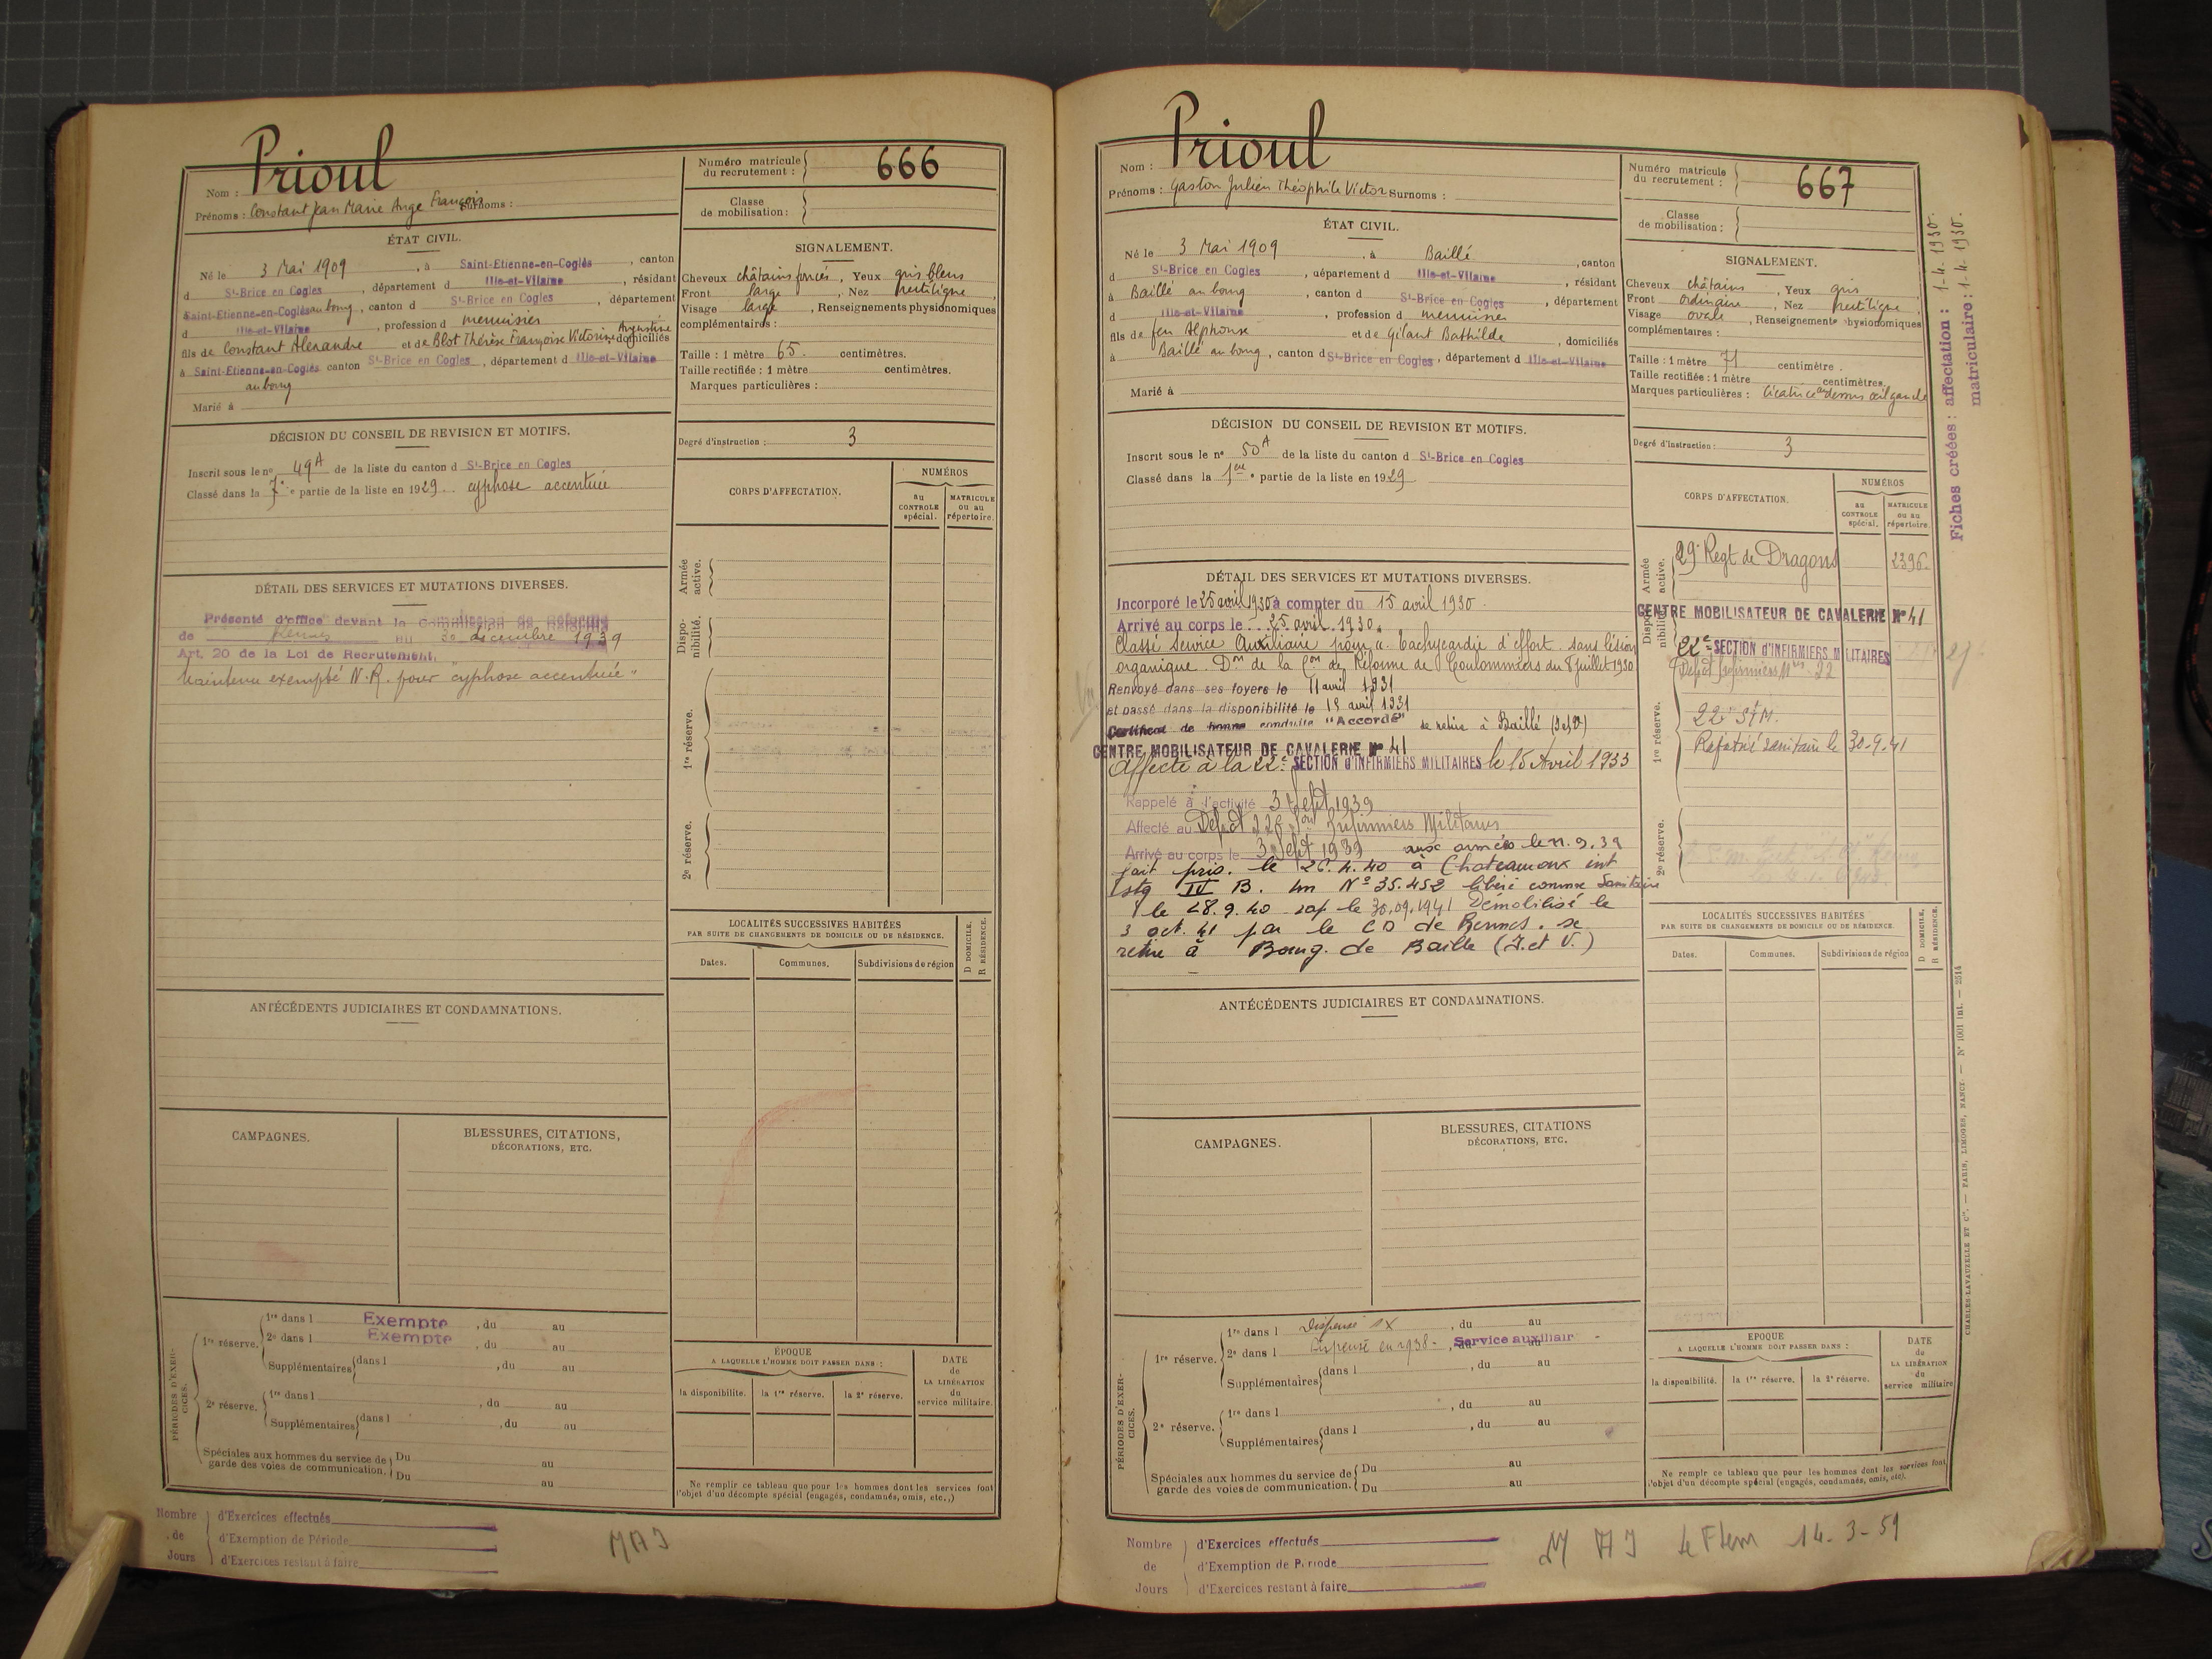 Prioul
Nom :
Prénoms : Constant Jean Marie Ange François Surnoms :
Numéro matricule du recrutement : 666
Classe de mobilisation :
ÉTAT CIVIL.
Né le 3 Mai 1909, à Saint-Etienne-en-Coglès, canton
d St-Brice en Cogles, département d Ille-et-Vilaine, résidant
à Saint-Etienne-en-Coglès au bourg, canton d St-Brice en Cogles, département
d Ille-et-Vilaine, profession d menuisier
fils de Constant Alexandre et de Blot Thérèse Françoise Victorine Augustine domiciliés
à Saint-Etienne-en-Coglès canton St-Brice en Cogles, département d Ille-et-Vilaine
au bourg
Marié à
SIGNALEMENT.
Cheveux châtains foncés, Yeux gris bleus
Front large, Nez rectiligne,
Visage large, Renseignements physionomiques
complémentaires :
Taille : 1 mètre 65 centimètres.
Taille rectifiée : 1 mètre centimètres.
Marques particulières :
Degré d'instruction : 3
DÉCISION DU CONSEIL DE REVISION ET MOTIFS.
Inscrit sous le no 49A de la liste du canton d St-Brice en Cogles
Classé dans la 7e partie de la liste en 1929. cyphose accentuée
DÉTAIL DES SERVICES ET MUTATIONS DIVERSES.
Présenté d'office devant la Commission de Réforme
de Rennes au 30 décembre 1939
Art. 20 de la Loi de Recrutement.
Maintenu exempté N.R. pour "cyphose accentuée"
CORPS D'AFFECTATION.
NUMÉROS
au CONTROLE spécial.
MATRICULE ou au répertoire.
Armée active.
Disponibilité.
1re réserve.
2e réserve.
LOCALITÉS SUCCESSIVES HABITÉES
PAR SUITE DE CHANGEMENTS DE DOMICILE OU DE RÉSIDENCE.
Dates.
Communes.
Subdivisions de région
D DOMICILE.
R RÉSIDENCE.
ANTÉCÉDENTS JUDICIAIRES ET CONDAMNATIONS.
CAMPAGNES.
BLESSURES, CITATIONS, DÉCORATIONS, ETC.
PÉRIODES D'EXERCICES.
1re réserve.
1re dans l Exempte, du au
2e dans l Exempte, du au
Supplémentaires dans l, du au
2e réserve.
1re dans l, du au
Supplémentaires dans l, du au
Spéciales aux hommes du service de garde des voies de communication.
Du au
Du au
ÉPOQUE
A LAQUELLE L'HOMME DOIT PASSER DANS :
la disponibilité.
la 1re réserve.
la 2e réserve.
DATE de LA LIBÉRATION du service militaire.
Ne remplir ce tableau que pour les hommes dont les services font
l'objet d'un décompte spécial (engagés, condamnés, omis, etc.,)
Nombre de Jours
d'Exercices effectués
d'Exemption de Période
d'Exercices restant à faire
MAJ
Prioul
Nom :
Prénoms : Gaston Julien Théophile Victor Surnoms :
Numéro matricule du recrutement : 667
Classe de mobilisation :
ÉTAT CIVIL.
Né le 3 Mai 1909, à Baillé, canton
d St-Brice en Cogles, département d Ille-et-Vilaine, résidant
à Baillé au bourg, canton d St-Brice en Cogles, département
d Ille-et-Vilaine, profession d menuisier
fils de feu Alphonse et de Gilant Bathilde, domiciliés
à Baillé au bourg, canton d St-Brice en Cogles, département d Ille-et-Vilaine
Marié à
SIGNALEMENT.
Cheveux châtains, Yeux gris
Front ordinaire, Nez rectiligne,
Visage ovale, Renseignements physionomiques
complémentaires :
Taille : 1 mètre 71 centimètre.
Taille rectifiée : 1 mètre centimètres.
Marques particulières : Cicatrice au dessus œil gauche
Degré d'instruction : 3
DÉCISION DU CONSEIL DE REVISION ET MOTIFS.
Inscrit sous le no 50A de la liste du canton d St-Brice en Cogles
Classé dans la 1ère partie de la liste en 1929
DÉTAIL DES SERVICES ET MUTATIONS DIVERSES.
Incorporé le 25 avril 1930 à compter du 15 avril 1930.
Arrivé au corps le 25 avril 1930.
Classé Service Auxiliaire pour tachycardie d'effort sans lésion
organique. Don de la Con de Réforme de Coulommiers du 8 juillet 1930
Renvoyé dans ses foyers le 11 avril 1931
et passé dans la disponibilité le 15 avril 1931
Certificat de bonne conduite "Accordé" se retire à Baillé (I et V)
CENTRE MOBILISATEUR DE CAVALERIE No 41
Affecté à la 22e SECTION d'INFIRMIERS MILITAIRES le 15 Avril 1933
Rappelé à l'activité 3 Sept 1939
Affecté au Dépôt 22e Son Infirmiers Militaires
Arrivé au corps le 3 Sept 1939 aux armées le 11.9.39
fait pris. le 26.4.40 à Chateauroux int
Stg IV B. Im No 35.452 libéré comme Sanitaire
le 28.9.40 rap le 30.09.1941 Démobilisé le
3 oct. 41 par le CD de Rennes. se
retire à Bourg. de Baille (I. et V.)
CORPS D'AFFECTATION.
NUMÉROS
au CONTROLE spécial.
MATRICULE ou au répertoire.
Armée active.
29e Regt de Dragons 2396
Disponibilité.
CENTRE MOBILISATEUR DE CAVALERIE No 41
22e SECTION d'INFIRMIERS MILITAIRES
Dépôt Infirmiers Mres 22
1re réserve.
22e SIM.
Rapatrié sanitaire le 30-9-41
2e réserve.
LOCALITÉS SUCCESSIVES HABITÉES
PAR SUITE DE CHANGEMENTS DE DOMICILE OU DE RÉSIDENCE.
Dates.
Communes.
Subdivisions de région
D DOMICILE.
R RÉSIDENCE.
ANTÉCÉDENTS JUDICIAIRES ET CONDAMNATIONS.
CAMPAGNES.
BLESSURES, CITATIONS DÉCORATIONS, ETC.
PÉRIODES D'EXERCICES.
1re réserve.
1re dans l Dispensé, du au
2e dans l Dispensé en 1938 - Service auxiliair
Supplémentaires dans l, du au
2e réserve.
1re dans l, du au
Supplémentaires dans l, du au
Spéciales aux hommes du service de garde des voies de communication.
Du au
Du au
EPOQUE
A LAQUELLE L'HOMME DOIT PASSER DANS :
la disponibilité.
la 1re réserve.
la 2e réserve.
DATE de LA LIBÉRATION du service militaire
Ne remplir ce tableau que pour les hommes dont les services font
l'objet d'un décompte spécial (engagés, condamnés, omis, etc).
Nombre de Jours
d'Exercices effectués
d'Exemption de Période
d'Exercices restant à faire
MAJ 14-3-59
Fiches créées : affectation : 1-4-1930.
matriculaire : 1-4-1930.
CHARLES-LAVAUZELLE ET Cie. — PARIS, LIMOGES, NANCY. — No 1001 int. — 2514